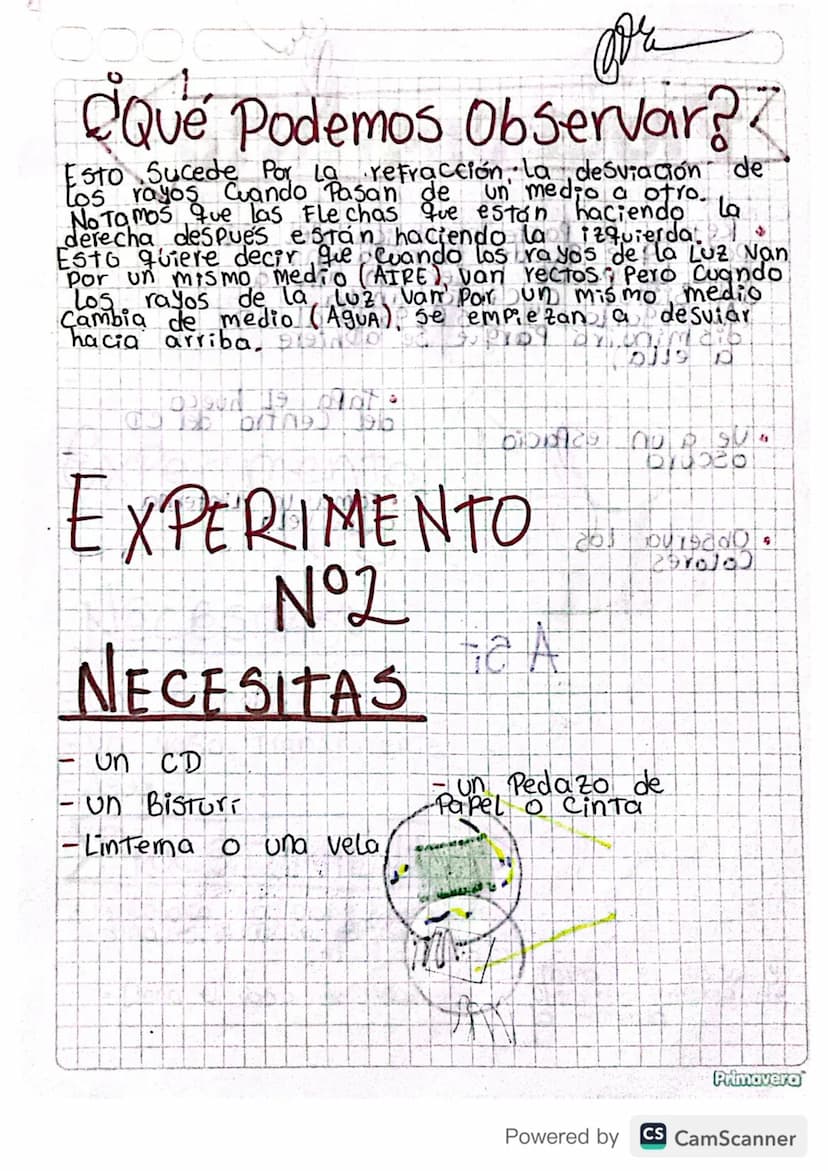 ¿Qué Podemos Observar?
Esto Sucede Por La refracción, la desviación de
los rayos Cuando Pasan de un medio a otro.
Notamos que las Flechas que están haciendo la
derecha, después están haciendo la izquierda.
Esto quiere decir que cuando los rayos de la Luz van
Por un mismo medio (AIRE), van rectos; Pero Cuando
Los rayos de la Luz Van Por un mismo medio
Cambia de medio (AguA), se empiezan a desviar
hacia arriba.
EXPERIMENTO
Nº2
NECESITAS
- un CD
- un Bisturí
- Linterna o una vela
- un Pedazo de
Papel o Cinta
Primavera
Powered by CS CamScanner